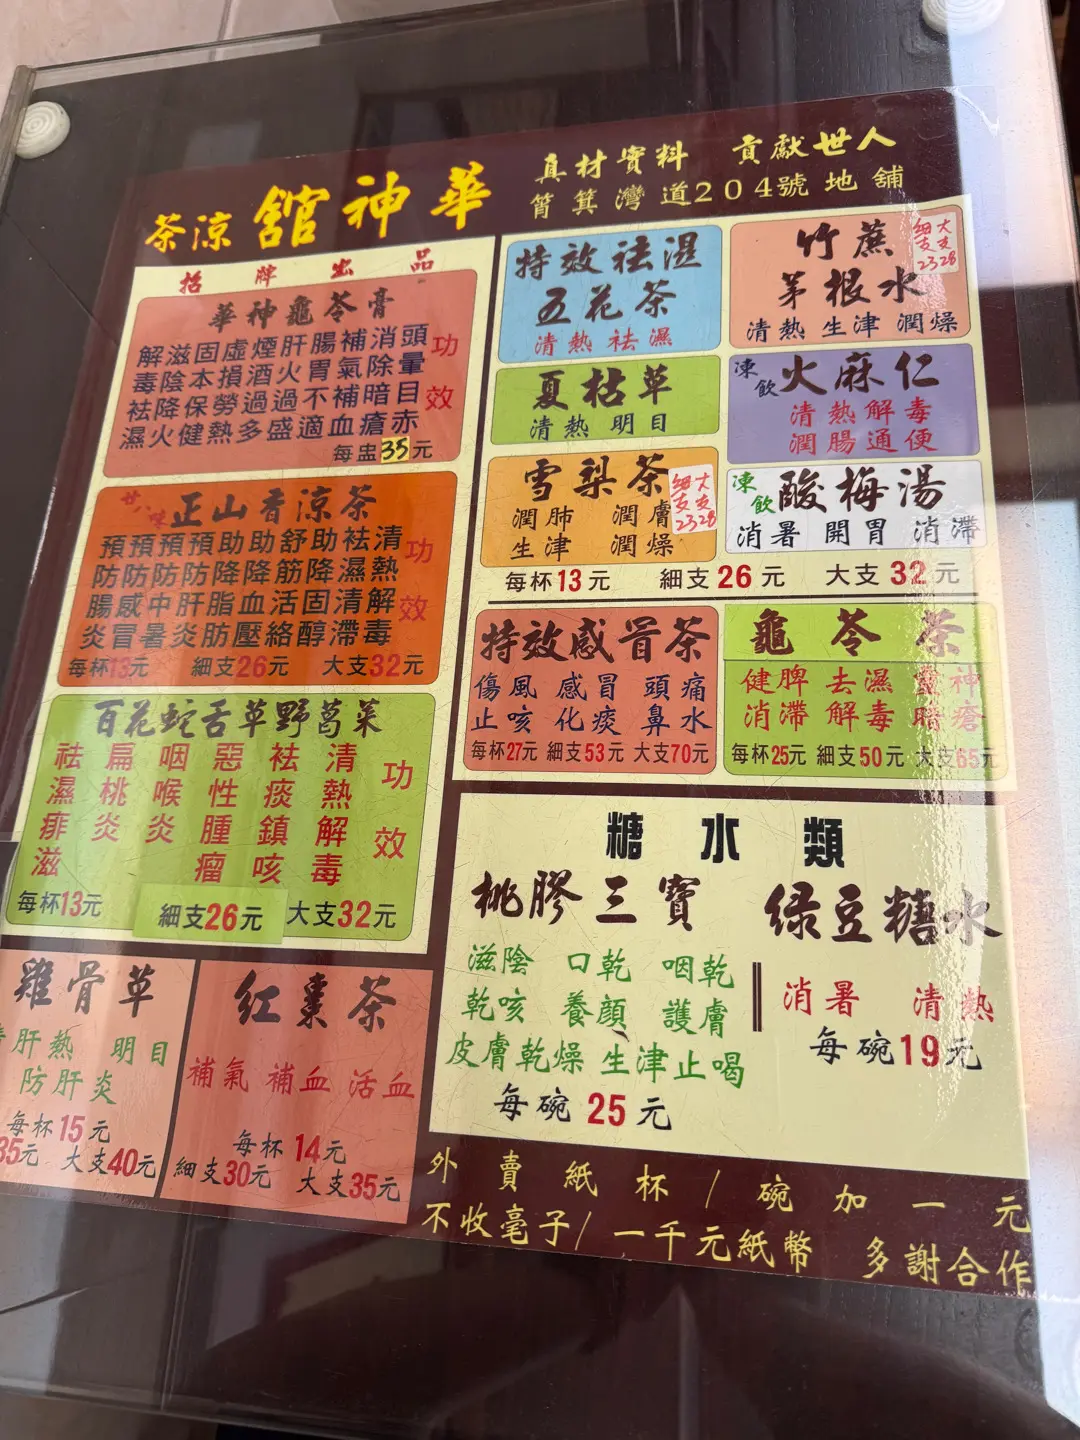 華神舘涼茶
真材實料 貢獻世人
筲箕灣道204號地舖
招牌出品
華神龜苓膏
解滋固虛煙肝腸補消頭
毒陰本損酒火胃氣除暈
袪降保勞過過不補暗目
濕火健熱多盛適血瘡赤
功效
每盅35元
廿八味
正山香涼茶
預預預預助助舒助袪清
防防防防降降筋降濕熱
腸感中肝脂血活固清解
炎冒暑炎肪壓絡醇滯毒
功效
每杯13元 細支26元 大支32元
百花蛇舌草野葛菜
祛扁咽惡袪清
濕桃喉性痰熱
痱炎炎腫鎮解
滋 瘤咳毒
功效
每杯13元 細支26元 大支32元
雞骨草
肝熱 明目
防肝炎
每杯15元
35元 大支40元
紅棗茶
補氣 補血 活血
每杯14元
細支30元 大支35元
特效祛濕
五花茶
清熱祛濕
竹蔗
茅根水
細支23 大支28
清熱 生津 潤燥
夏枯草
清熱 明目
凍飲
火麻仁
清熱解毒
潤腸通便
雪梨茶
細支23 大支28
潤肺 潤膚
生津 潤燥
凍飲
酸梅湯
消暑 開胃 消滯
每杯13元 細支26元 大支32元
特效感冒茶
傷風 感冒 頭痛
止咳 化痰 鼻水
每杯27元 細支53元 大支70元
龜苓茶
健脾 去濕 神
消滯 解毒 暗瘡
每杯25元 細支50元 大支65元
糖水類
桃膠三寶
滋陰 口乾 咽乾
乾咳 養顏 護膚
皮膚乾燥 生津止喝
每碗25元
绿豆糖水
消暑 清熱
每碗19元
外賣紙杯/碗加一元
不收毫子/一千元紙幣 多謝合作